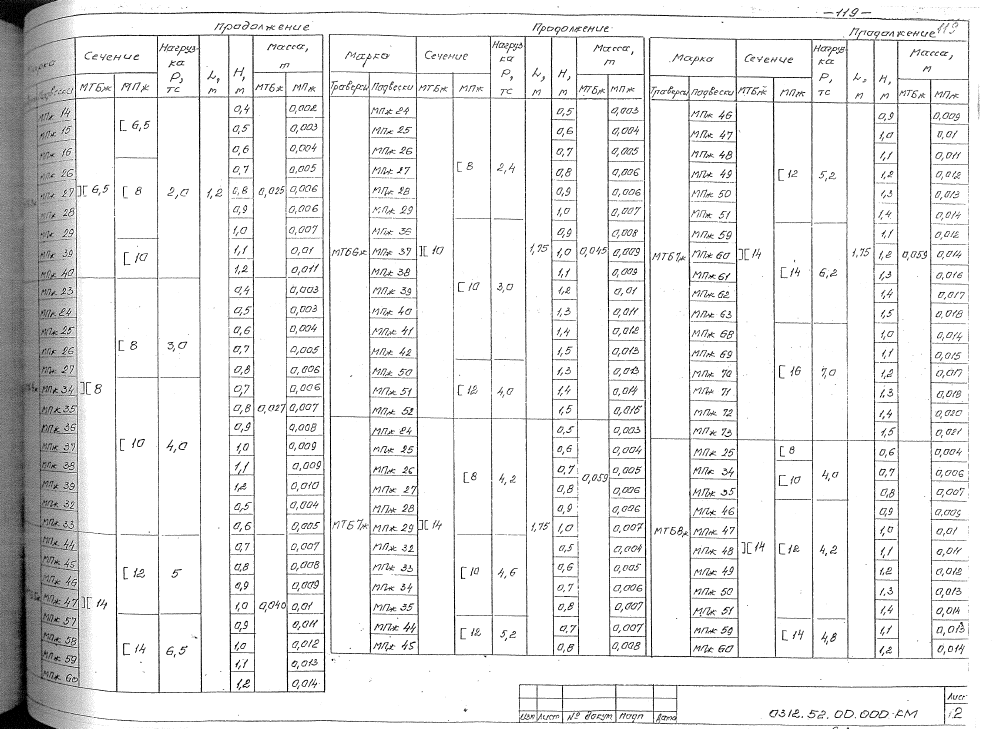 — 119 —
119
Продолжение Продолжение Продолжение
Марка Сечение Нагрузка P, тс L, м H, м Масса, т
Подвески МТБж МПж МТБж МПж
МПж 14 ][ 6,5 [ 6,5 2,0 1,2 0,4 0,025 0,002
МПж 15 0,5 0,003
МПж 16 0,6 0,004
МПж 26 [ 8 0,7 0,005
МПж 27 0,8 0,006
МПж 28 0,9 0,006
МПж 29 1,0 0,007
МПж 39 [ 10 1,1 0,01
МПж 40 1,2 0,011
МПж 23 ][ 8 [ 8 3,0 0,4 0,027 0,003
МПж 24 0,5 0,003
МПж 25 0,6 0,004
МПж 26 0,7 0,005
МПж 27 0,8 0,006
МПж 34 [ 10 4,0 0,7 0,006
МПж 35 0,8 0,007
МПж 36 0,9 0,008
МПж 37 1,0 0,009
МПж 38 1,1 0,009
МПж 39 1,2 0,010
МПж 32 0,5 0,004
МПж 33 0,6 0,005
МПж 44 ][ 14 [ 12 5 0,7 0,040 0,007
МПж 45 0,8 0,008
МПж 46 0,9 0,009
МПж 47 1,0 0,01
МПж 57 [ 14 6,5 0,9 0,011
МПж 58 1,0 0,012
МПж 59 1,1 0,013
МПж 60 1,2 0,014
Марка Сечение Нагрузка P, тс L, м H, м Масса, т
Траверсы Подвески МТБж МПж МТБж МПж
МТБ6ж МПж 24 ][ 10 [ 8 2,4 1,75 0,5 0,045 0,003
МПж 25 0,6 0,004
МПж 26 0,7 0,005
МПж 27 0,8 0,006
МПж 28 0,9 0,006
МПж 29 1,0 0,007
МПж 36 [ 10 3,0 0,9 0,008
МПж 37 1,0 0,009
МПж 38 1,1 0,009
МПж 39 1,2 0,01
МПж 40 1,3 0,011
МПж 41 1,4 0,012
МПж 42 1,5 0,013
МПж 50 [ 12 4,0 1,3 0,013
МПж 51 1,4 0,014
МПж 52 1,5 0,015
МТБ7ж МПж 24 ][ 14 [ 8 4,2 1,75 0,5 0,059 0,003
МПж 25 0,6 0,004
МПж 26 0,7 0,005
МПж 27 0,8 0,006
МПж 28 0,9 0,006
МПж 29 1,0 0,007
МПж 32 [ 10 4,6 0,5 0,004
МПж 33 0,6 0,005
МПж 34 0,7 0,006
МПж 35 0,8 0,007
МПж 44 [ 12 5,2 0,7 0,007
МПж 45 0,8 0,008
Марка Сечение Нагрузка P, тс L, м H, м Масса, т
Траверсы Подвески МТБж МПж МТБж МПж
МТБ7ж МПж 46 ][ 14 [ 12 5,2 1,75 0,9 0,059 0,009
МПж 47 1,0 0,01
МПж 48 1,1 0,011
МПж 49 1,2 0,012
МПж 50 1,3 0,013
МПж 51 1,4 0,014
МПж 59 [ 14 6,2 1,1 0,012
МПж 60 1,2 0,014
МПж 61 1,3 0,016
МПж 62 1,4 0,017
МПж 63 1,5 0,018
МПж 68 [ 16 7,0 1,0 0,014
МПж 69 1,1 0,015
МПж 70 1,2 0,017
МПж 71 1,3 0,018
МПж 72 1,4 0,020
МПж 73 1,5 0,021
МТБ8ж МПж 25 ][ 14 [ 8 4,0 0,6 0,004
МПж 34 [ 10 0,7 0,006
МПж 35 0,8 0,007
МПж 46 [ 12 4,2 0,9 0,009
МПж 47 1,0 0,01
МПж 48 1,1 0,011
МПж 49 1,2 0,012
МПж 50 1,3 0,013
МПж 51 1,4 0,014
МПж 59 [ 14 4,8 1,1 0,013
МПж 60 1,2 0,014
Изм Лист № докум Подп Дата
0312.52.00.000-КМ
Лист
2